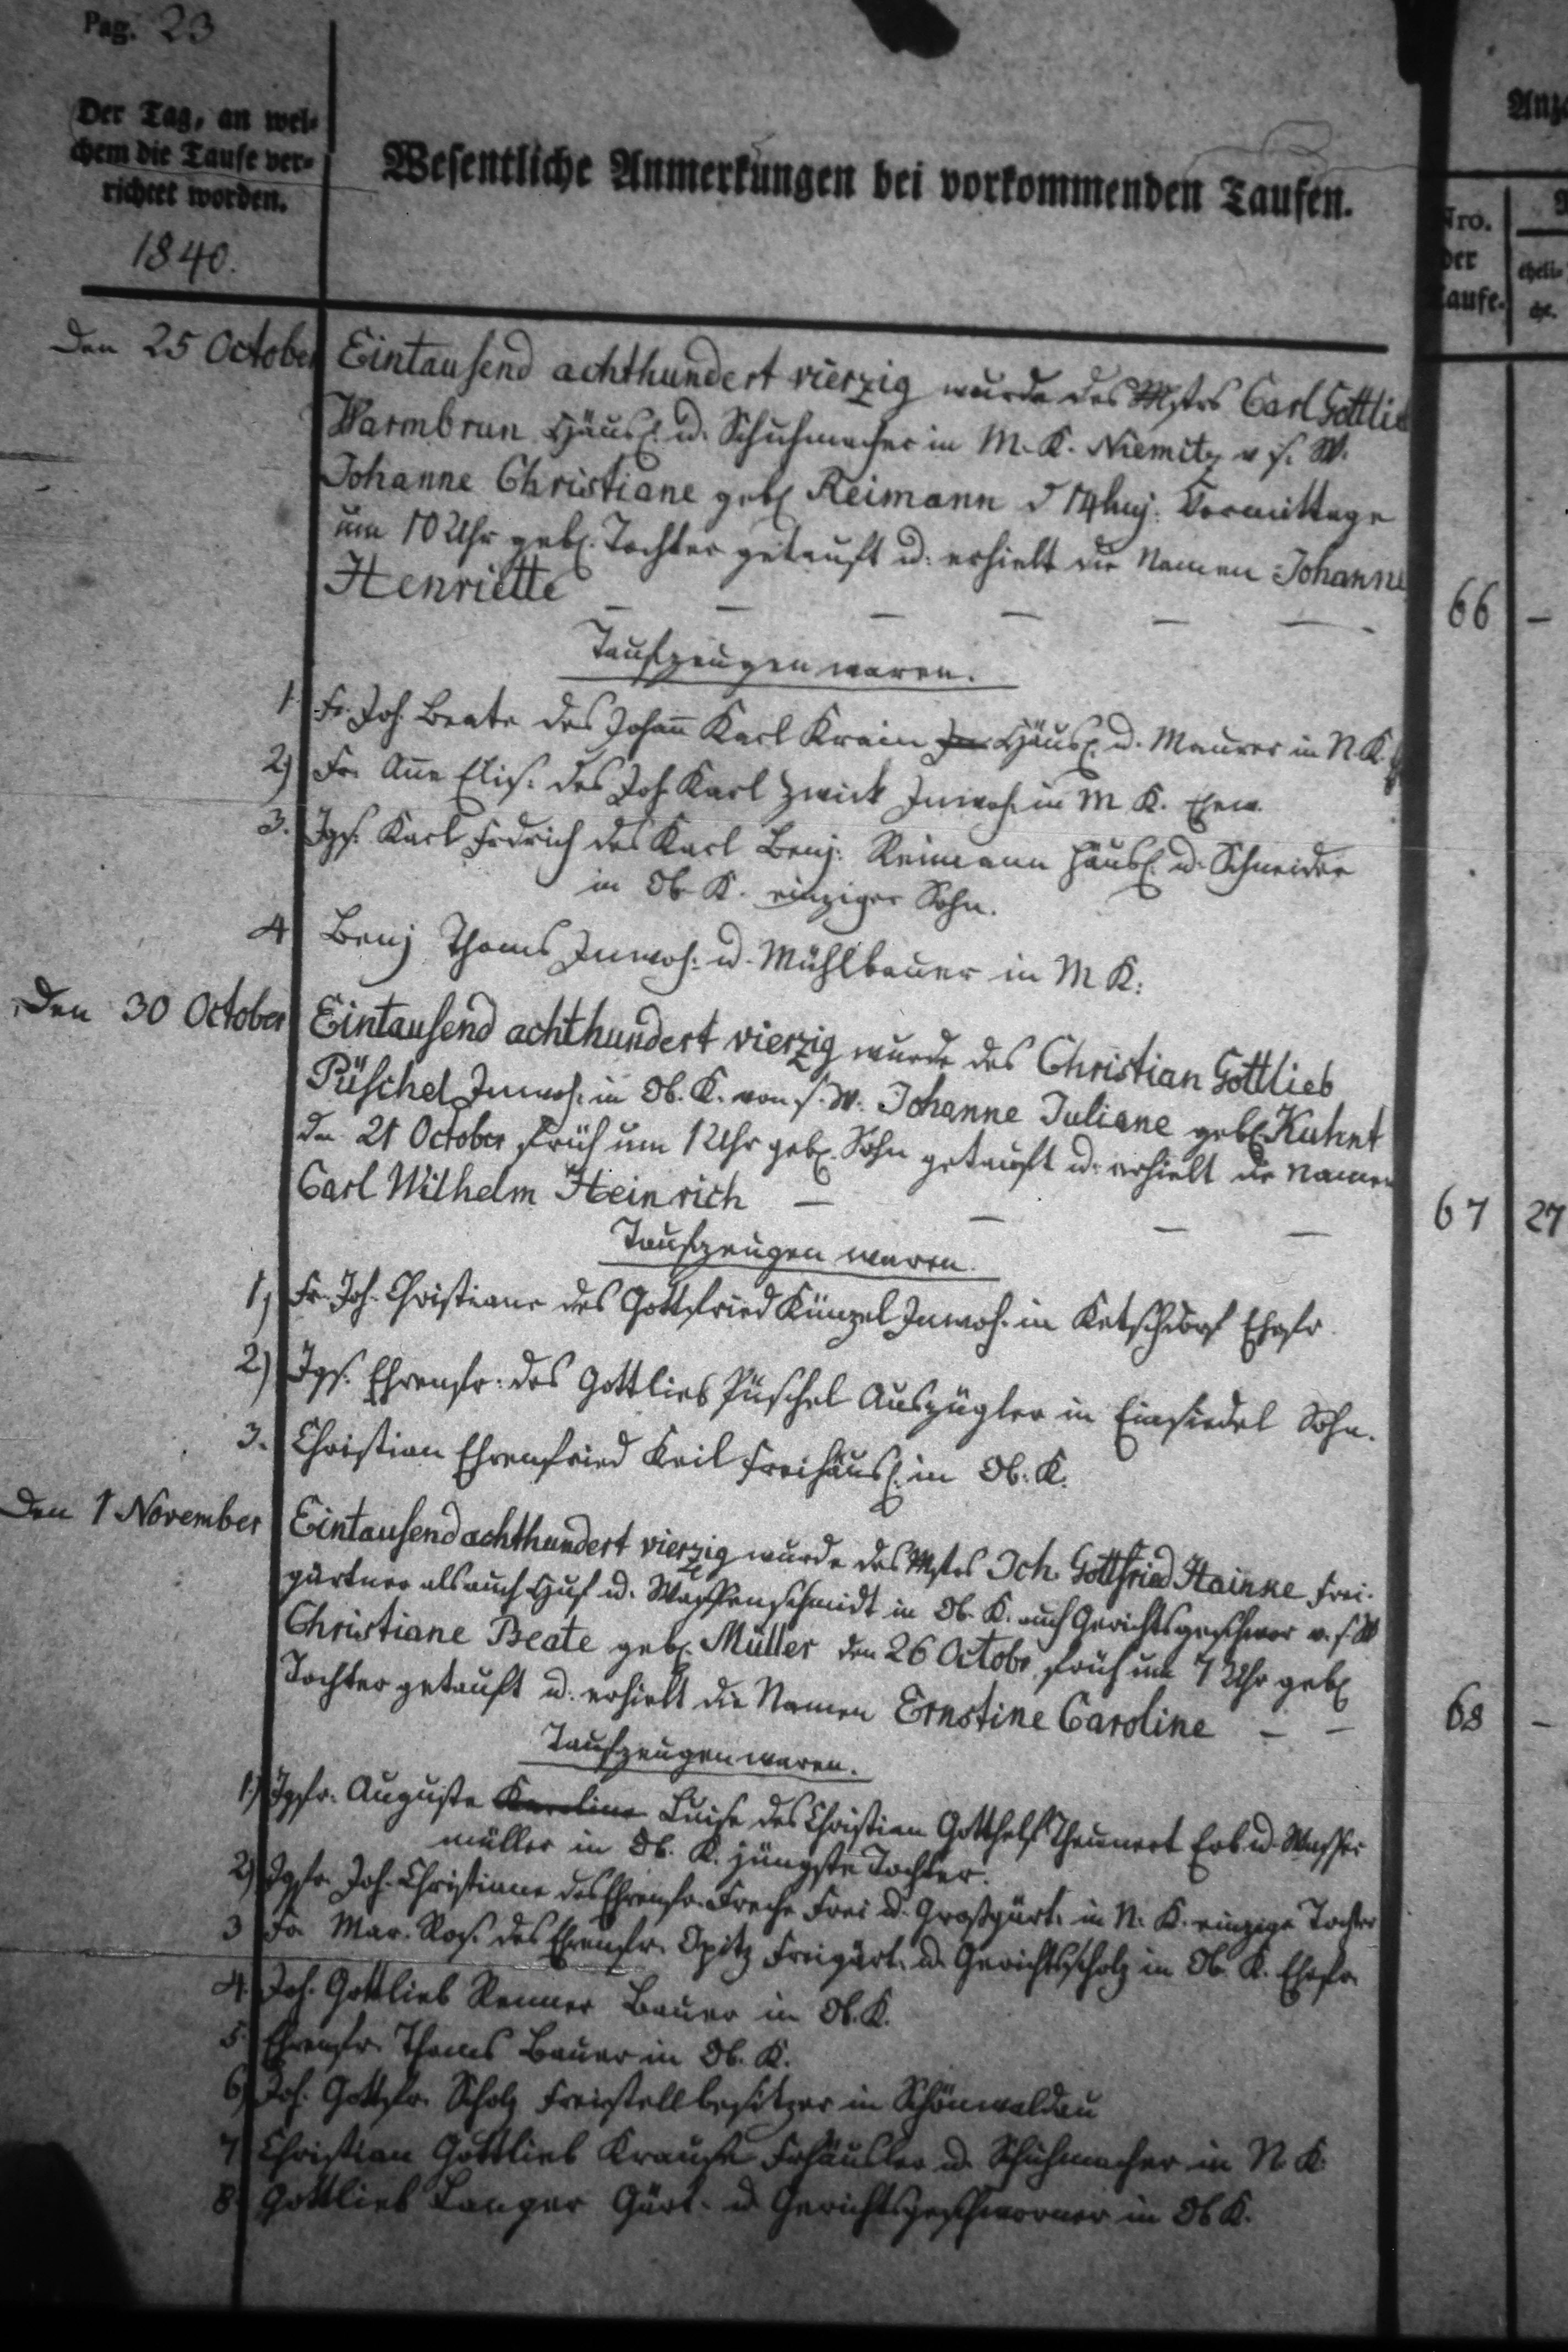 Pag. 23
Der Tag, an wel-
chem die Taufe ver-
richtet worden.
1840.
Wesentliche Anmerkungen bei vorkommenden Taufen.
Nro.
der
Taufe.
eheli-
che.
Den 25 October Eintausend achthundert vierzig wurde des Mstrs Carl Gottlie
Warmbrun Häusl. u. Schuhmacher in M. K. Niemitz v. s. W.
Johanne Christiane geb. Reimann d 14 huj. Vormittags
um 10 Uhr geb. Tochter getauft u. erhielt die Namen Johanne
Henriette — — — — — — 66 —
Taufzeugen waren.
1. Fr. Joh. Beate des Johann Karl Krain Häusl. u. Maurer in N. K.
2) Fr. Ane Elis. des Joh. Karl Zwick Inwoh. in M K. Ehew.
3. Jgs. Karl Frdrich des Karl Benj. Reimann Häusl. u. Schneider
in Ob. K. einziger Sohn.
4 Benj Thoms Inwoh. u. Mühlbauer in M K.
Den 30 October Eintausend achthundert vierzig wurde des Christian Gottlieb
Püschel Inwoh. in Ob. K. von s. W. Johanne Juliane geb. Kuhnt
den 21 October früh um 1 Uhr geb. Sohn getauft u. erhielt die Namen
Carl Wilhelm Heinrich — — — — 67 27
Taufzeugen waren.
1) Fr. Joh. Christiane des Gottfried Künzel Inwoh. in Ketschdorf Ehefr.
2) Jgs. Ehrenfr. des Gottlieb Püschel Auszügler in Einsiedel Sohn.
3. Christian Ehrenfried Keil Freihäusl. in Ob. K.
Den 1 November Eintausend achthundert vierzig wurde des Mstrs Joh. Gottfried Hainke Frei-
gärtner als auch Huf u. Waffenschmidt in Ob. K. auch Gerichtsgeschwor v. s. W
Christiane Beate geb. Müller den 26 Octobr. früh um 7 Uhr geb.
Tochter getauft u. erhielt die Namen Ernstine Caroline — — 68 —
Taufzeugen waren.
1.) Jgfr. Auguste Karoline Luise des Christian Gotthelf Theunert Erb u. Wasser
müller in Ob. K. jüngste Tochter.
2) Jgfr. Joh. Christiane des Ehrenfr. Freche Frei u. Großgärt. in N. K. einzige Tochter
3 Fr. Mar. Ros. des Ehrenfr. Opitz Freigärt. u. Gerichtsscholz in Ob. K. Ehefr.
4. Joh. Gottlieb Renner Bauer in Ob. K.
5. Ehrenfr. Thoms Bauer in Ob. K.
6) Joh. Gottfr. Scholz Freistellbesitzer in Schönwaldau
7 Christian Gottlieb Krause Frhäusler u. Schuhmacher in N. K.
8. Gottlieb Langer Gärt. u. Gerichtsgeschworner in Ob K.